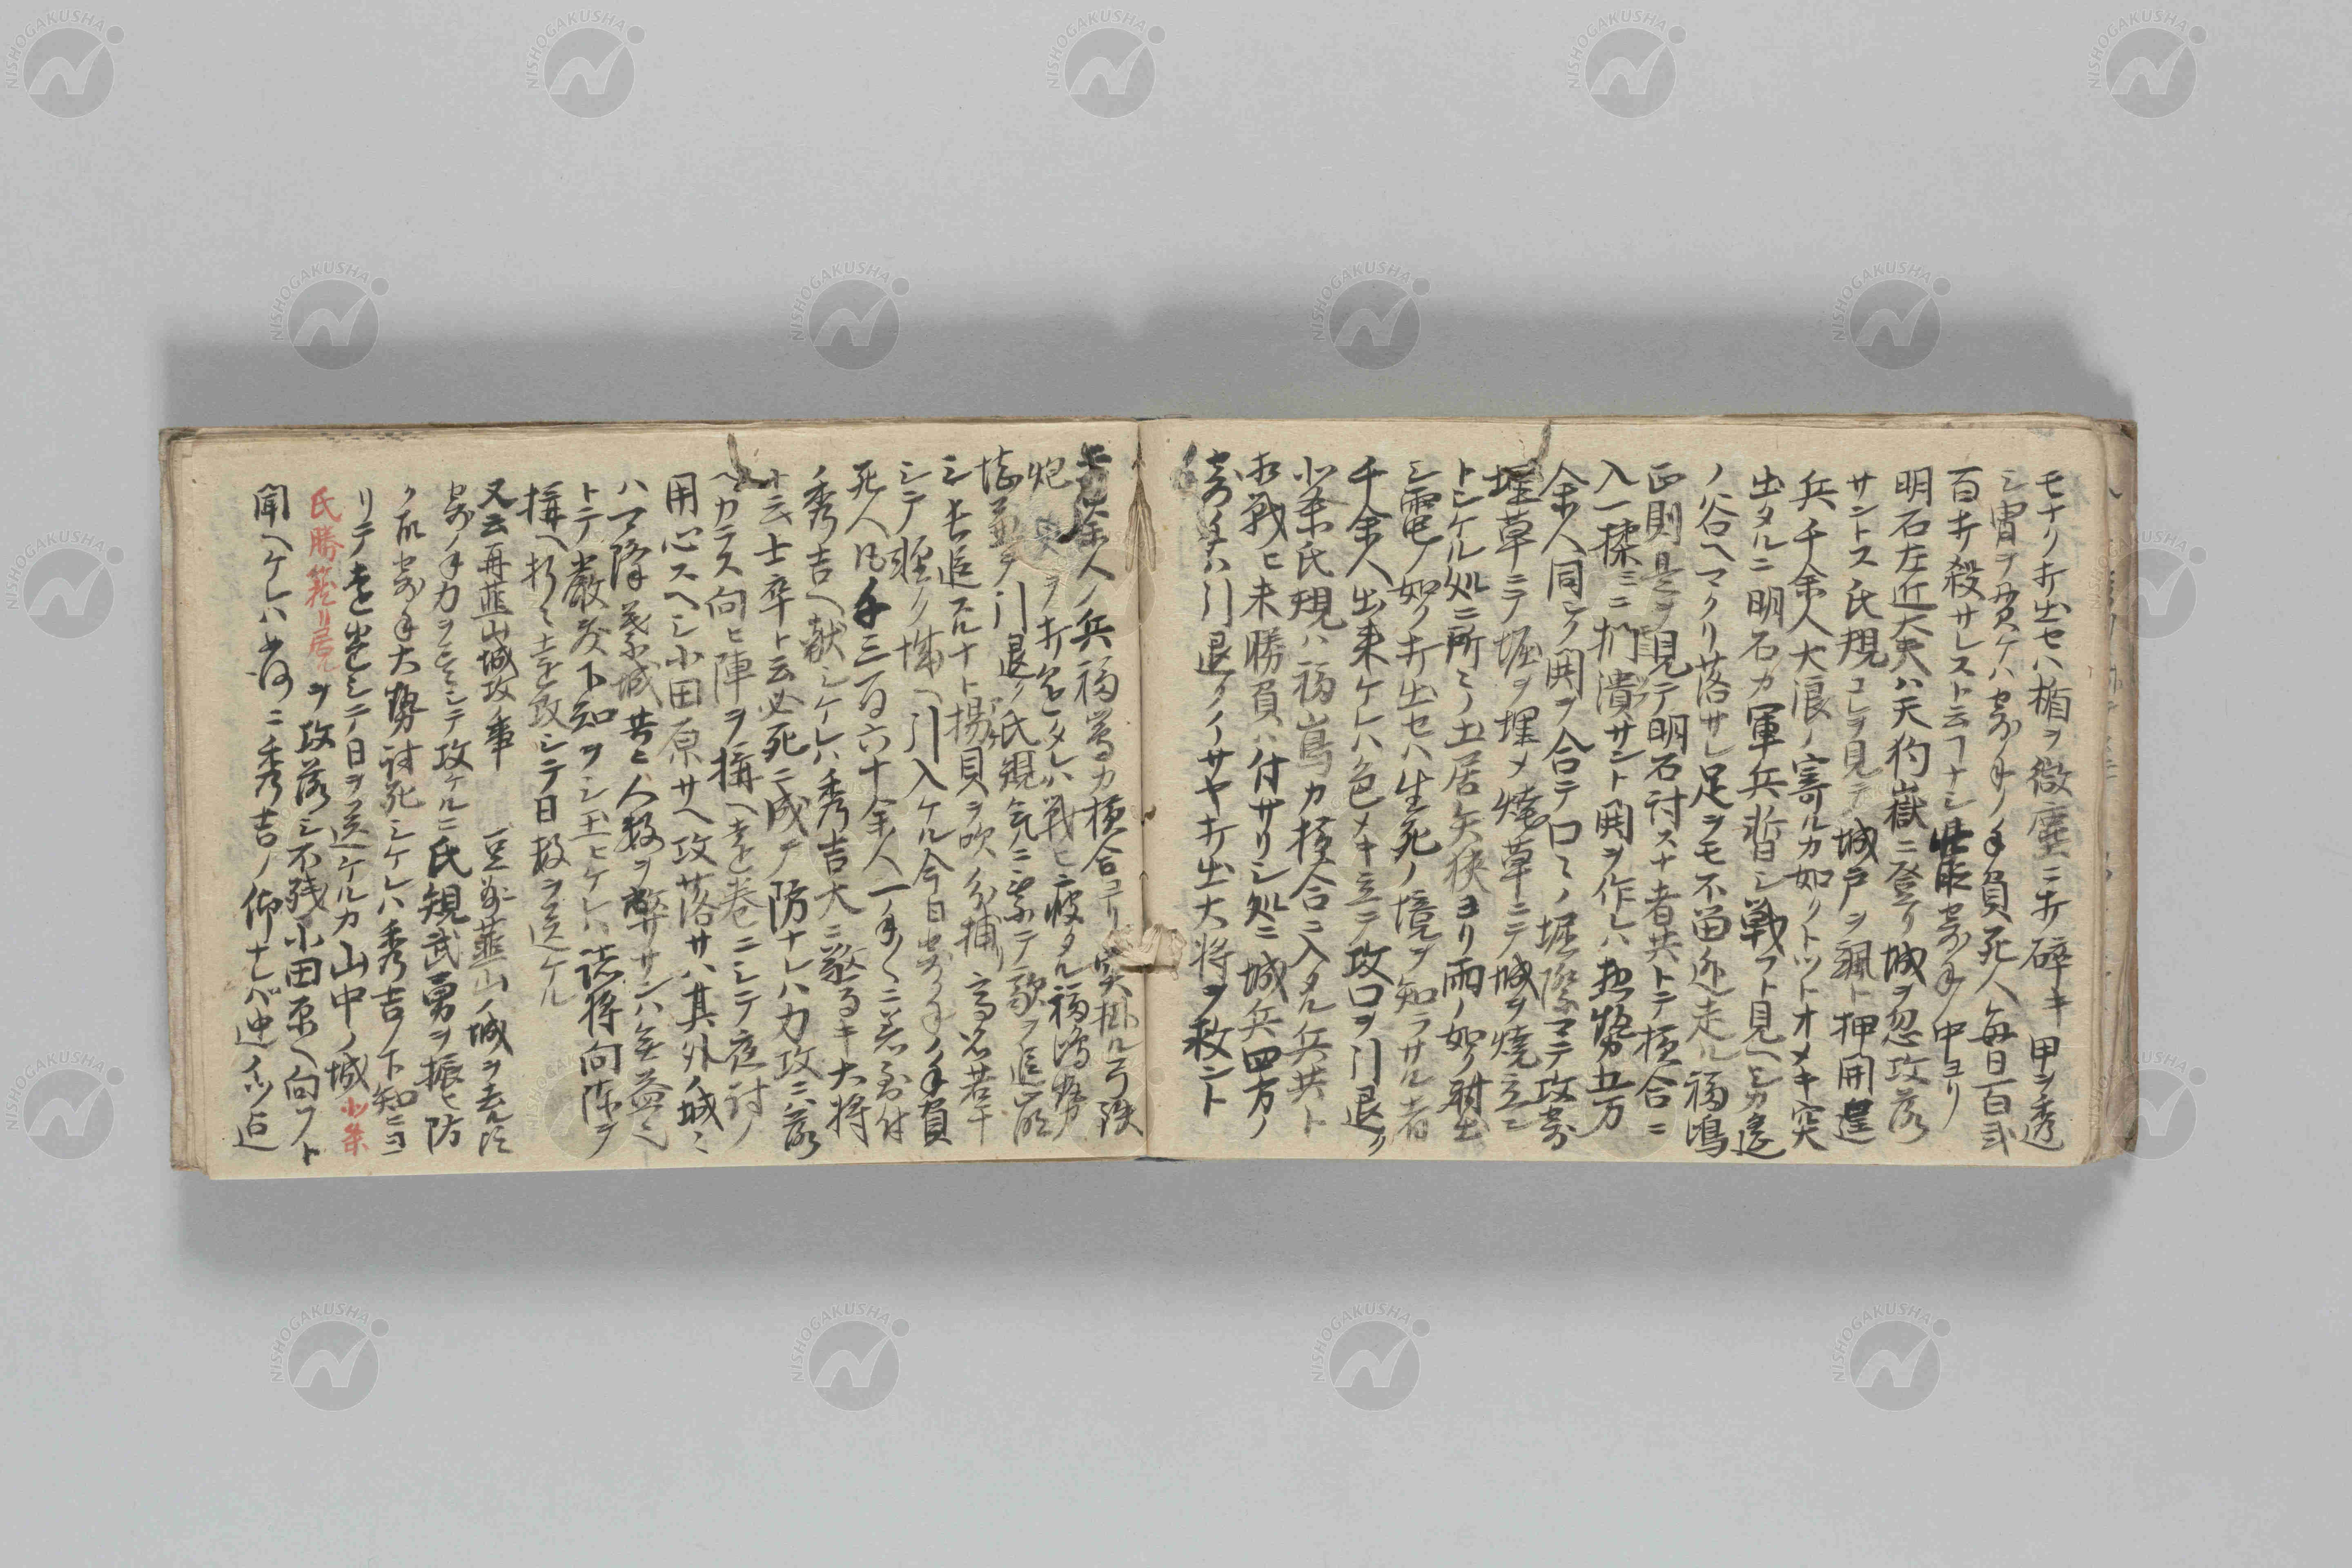 モナリ打出セハ楯ヲ微塵ニ打碎キ甲ヲ透
シ冑ヲ貫ケハ寄手ノ手負死人毎日百弐
百打殺サレスト云フナシ寄手ノ中ヨリ
明石左近大夫ハ天狗嶽ニ登リ城ヲ忽攻落
サントス氏規コレヲ見テ城戸ヲ颯ト押開逞
兵千余人大浪ノ寄ルカ如クトツトオメキ突
出タルニ明石カ軍兵暫シ戦フト見ヘシカ遙
ノ谷ヘマクリ落サレ足ヲモ不留迯走ル福嶋
正則是ヲ見テ明石討スナ者共トテ横合ニ
入一揉ミニ揉潰サント鬨ヲ作レハ惣勢五万
余人同シク鬨ヲ合テ口々ノ堀際マテ攻寄
埋草ニテ堀ヲ埋メ焼草ニテ城ヲ焼立ン
トシケル処ニ所々ノ土居矢狭ヨリ雨ノ如ク射出
シ電ノ如ク打出セハ生死ノ境ヲ知ラサル者
千余人出来ケレハ色メキ立テ攻口ヲ引退ク
北条氏規ハ福嶌カ横合ニ入タル兵共ト
相戦ヒ未勝負ハ付サリシ処ニ城兵四方ノ
寄手ハ引退クイサヤ打出大将ヲ救ント
千余人ノ兵福嶌カ横合ヨリ突掛ル弓鉄
炮ヲ打タレハ戦ヒニ疲タル福嶋勢
引退ク氏規気ニ乗テ敵ヲ追
シ長追スルナト揚貝ヲ吹分捕高名若干
シテ堅ク城ヘ引入ケル今日寄手ノ手負
死人凡千三百六十余人一々ニ着到付
ノ秀吉ヘ献シケレハ秀吉大ニ驚キ大将
ト云士卒ト云必死ニ成テ防ナレハ力攻ニハ落
ヘカラス向ヒ陣ヲ構ヘ遠巻ニシテ夜討ノ
用心スヘシ小田原サヘ攻落サハ其外ノ城ハ
ハマ降参城共ニ人数ヲ弊サンハ無益也
トテ厳敷下知ヲシ玉ヒケレハ諸将向陣ヲ
構ヘ折々遠攻シテ日数ヲ送ケル
又云再韮山城攻ノ事　豆州韮山ノ城ヲ去ル比
寄手力ヲ尽シテ攻ケルニ氏規武勇ヲ振ヒ防
ク故寄手大勢討死シケレハ秀吉ノ下知ニヨ
リテ遠巻シテ日ヲ送ケルカ山中ノ城小条
氏勝籠リ居ルヲ攻落シ不残小田原ヘ向フト
聞ヘケレハ爰ニ秀吉ノ仰ナレハ迚